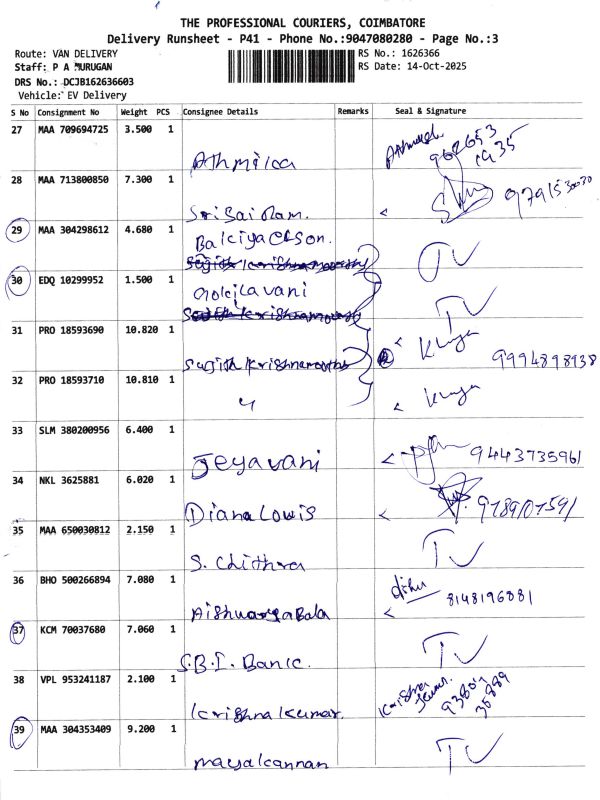 THE PROFESSIONAL COURIERS, COIMBATORE
Delivery Runsheet - P41 - Phone No.:9047080280 - Page No.:3
Route: VAN DELIVERY
RS No.: 1626366
Staff: P A MURUGAN
RS Date: 14-Oct-2025
DRS No.: DCJB162636603
Vehicle: EV Delivery
S No Consignment No Weight PCS Consignee Details Remarks Seal & Signature
27 MAA 709694725 3.500 1
Athmika
28 MAA 713800850 7.300 1
Sri Sai Ram.
29 MAA 304298612 4.680 1
Balkiya
TV
30 EDQ 10299952 1.500 1
Gokilavani
TV
31 PRO 18593690 10.820 1
Sujith Krishnamoorthy
9994898938
32 PRO 18593710 10.810 1
"
33 SLM 380200956 6.400 1
Jeyavani 9443735961
34 NKL 3625881 6.020 1
Diana Lowis
35 MAA 650030812 2.150 1
S. Chithra TV
36 BHO 500266894 7.080 1
Aishwarya Bala 8148196881
37 KCM 70037680 7.060 1
S.B.I. Bank. TV
38 VPL 953241187 2.100 1
Krishna Kumar. Krishna Kumar.
39 MAA 304353409 9.200 1
mayakannan TV